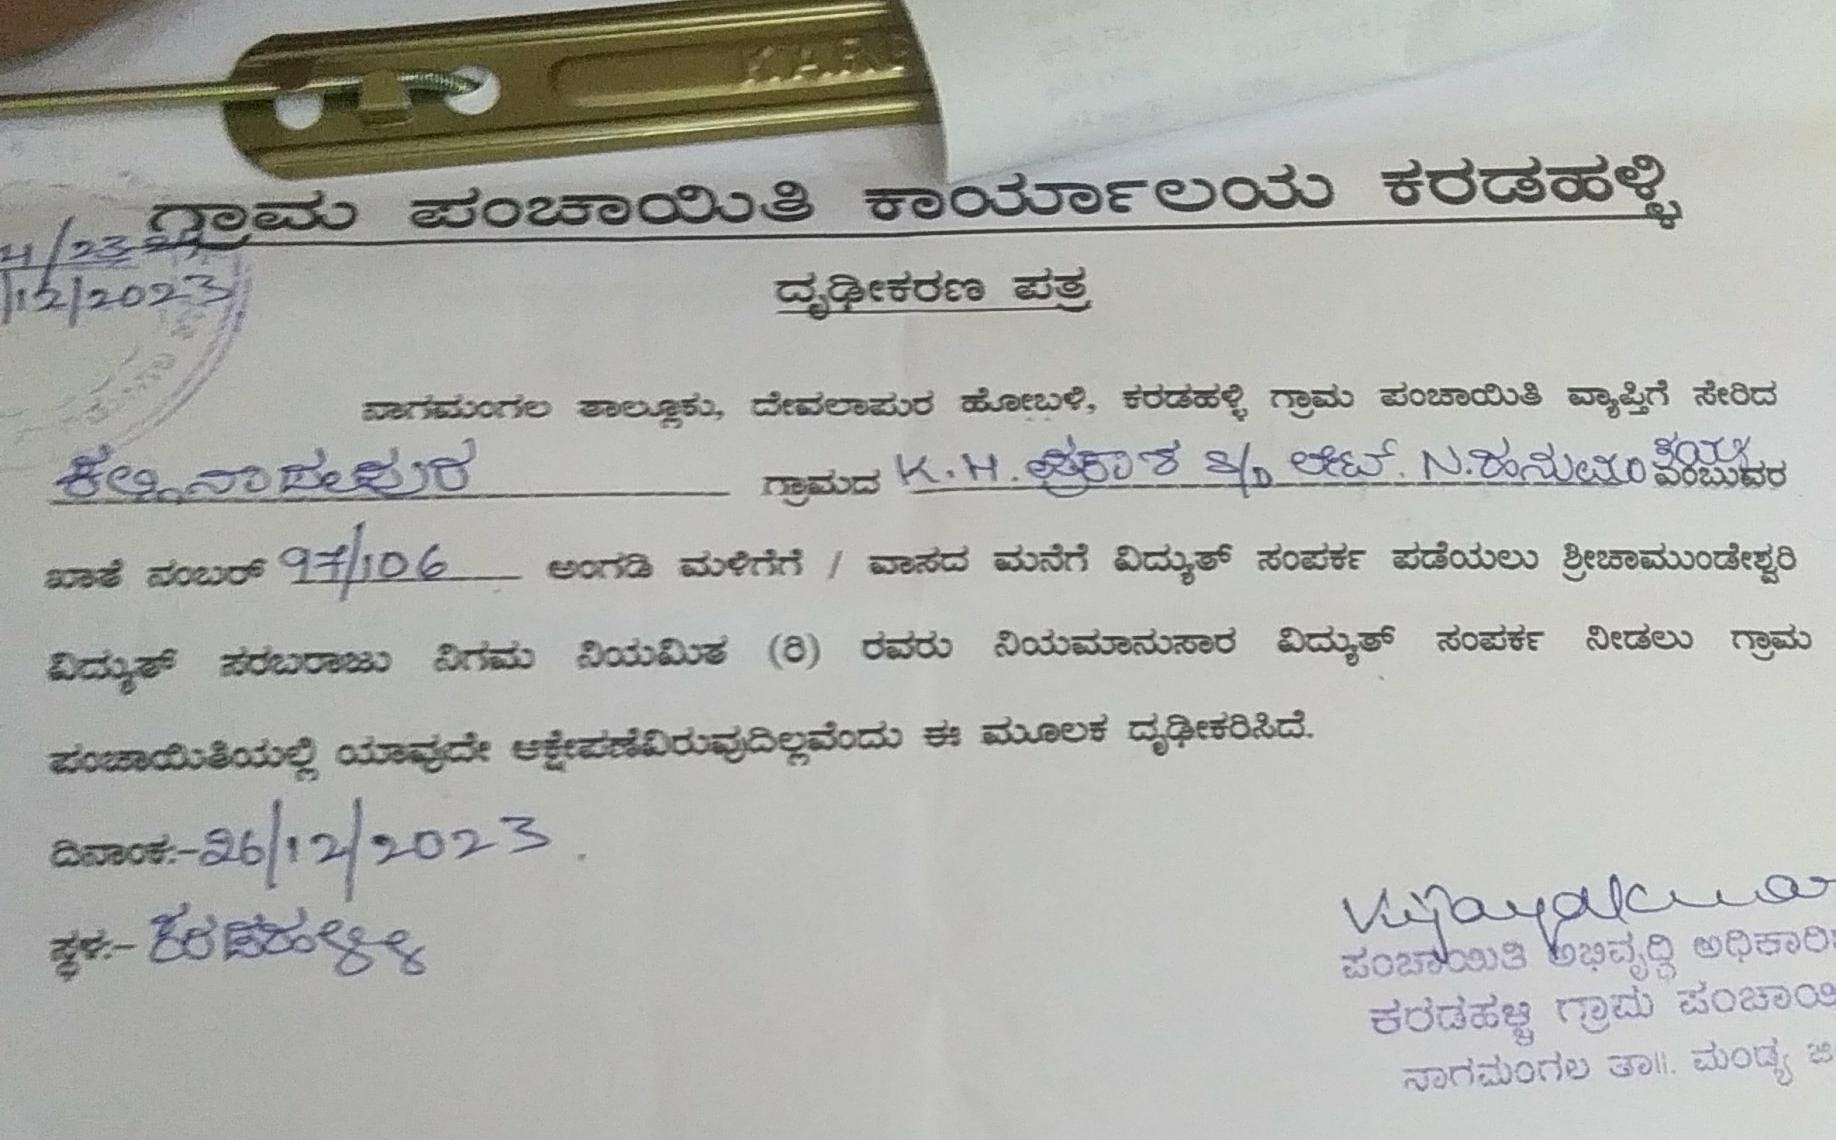 ಗ್ರಾಮ ಪಂಚಾಯಿತಿ ಕಾರ್ಯಾಲಯ ಕರಡಹಳ್ಳಿ
4/23
/12/2023
ದೃಢೀಕರಣ ಪತ್ರ
ನಾಗಮಂಗಲ ತಾಲ್ಲೂಕು, ದೇವಲಾಪುರ ಹೋಬಳಿ, ಕರಡಹಳ್ಳಿ ಗ್ರಾಮ ಪಂಚಾಯಿತಿ ವ್ಯಾಪ್ತಿಗೆ ಸೇರಿದ
ಗ್ರಾಮದ K.H. ಪ್ರಕಾಶ S/o ಲೇಟ್. N. ಹನುಮಂತಯ್ಯ ಎಂಬುವರ
ಖಾತೆ ನಂಬರ್ 97/106 ಅಂಗಡಿ ಮಳಿಗೆಗೆ / ವಾಸದ ಮನೆಗೆ ವಿದ್ಯುತ್ ಸಂಪರ್ಕ ಪಡೆಯಲು ಶ್ರೀಚಾಮುಂಡೇಶ್ವರಿ
ವಿದ್ಯುತ್ ಸರಬರಾಜು ನಿಗಮ ನಿಯಮಿತ (ರಿ) ರವರು ನಿಯಮಾನುಸಾರ ವಿದ್ಯುತ್ ಸಂಪರ್ಕ ನೀಡಲು ಗ್ರಾಮ
ಪಂಚಾಯಿತಿಯಲ್ಲಿ ಯಾವುದೇ ಆಕ್ಷೇಪಣೆವಿರುವುದಿಲ್ಲವೆಂದು ಈ ಮೂಲಕ ದೃಢೀಕರಿಸಿದೆ.
ದಿನಾಂಕ:-26/12/2023
ಸ್ಥಳ:- ಕರಡಹಳ್ಳಿ
Vijayalkumar
ಪಂಚಾಯಿತಿ ಅಭಿವೃದ್ಧಿ ಅಧಿಕಾರಿ
ಕರಡಹಳ್ಳಿ ಗ್ರಾಮ ಪಂಚಾಯಿ
ನಾಗಮಂಗಲ ತಾ||. ಮಂಡ್ಯ ಜಿ